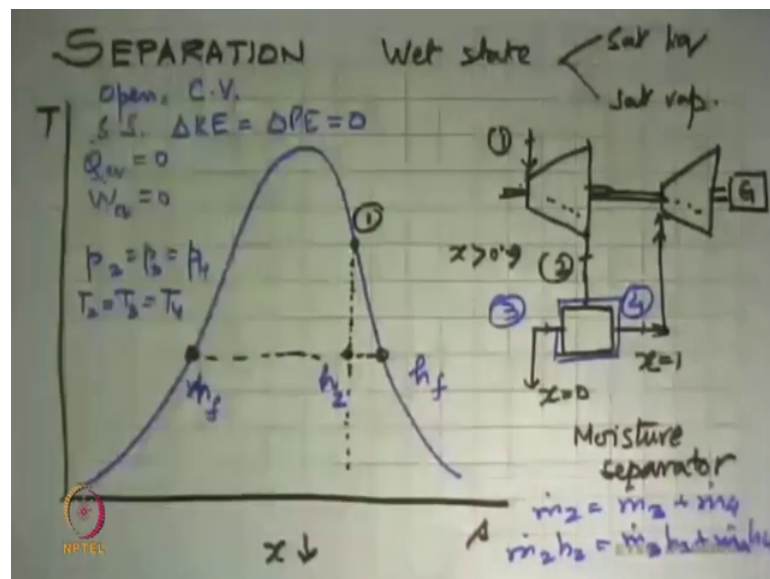 SEPARATION
Wet state
Sat liq
Sat vap.
Open. C.V.
S.S. ΔKE = ΔPE = 0
Q̇cv = 0
Ẇcv = 0
p₂ = p₃ = p₄
T₂ = T₃ = T₄
T
①
hf
h₂
hf
x ↓
s
①
G
x > 0.9
②
③
④
x=0
x=1
Moisture
separator
ṁ₂ = ṁ₃ + ṁ₄
ṁ₂h₂ = ṁ₃h₃ + ṁ₄h₄
NPTEL